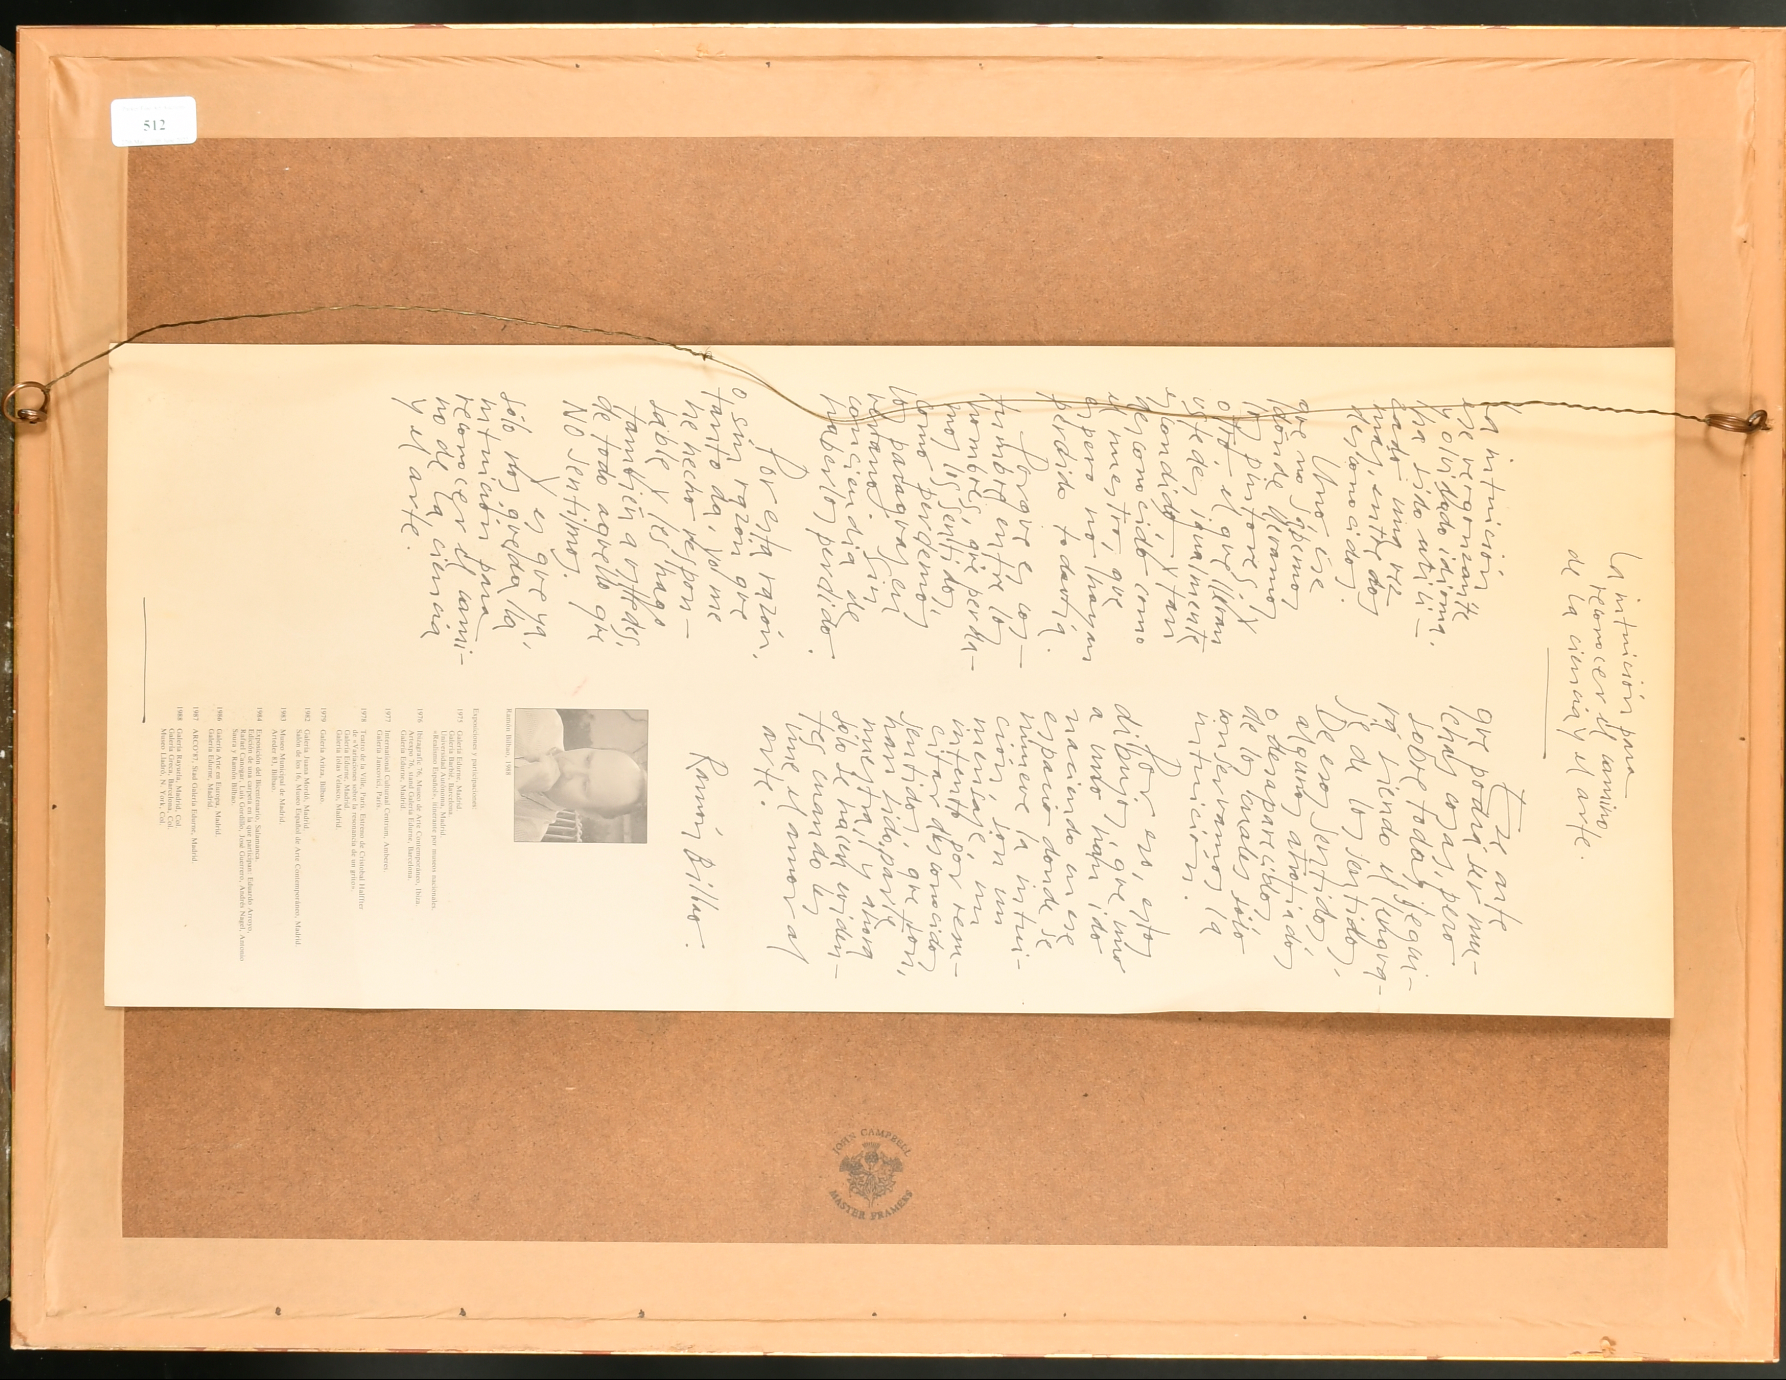 512
La intuición para
reconocer el camino
de la ciencia y el arte.
La intuición
ese vergonzante
y olvidado idioma,
ha sido utili-
zado una vez
más, entre dos
desconocidos.
Uno, ese
que no sabemos
dónde llevamos
los pintores, y
otro, el que llevan
ustedes igualmente
escondido, y tan
desconocido como
el nuestro, que
espero no hayan
perdido todavía.
Porque es cos-
tumbre entre los
hombres, que perda-
mos los sentidos,
como perdemos
los paraguas en
verano. Sin
conciencia de
haberlos perdido.
Por esta razón,
o sin razón que
tanto da, yo me
he hecho respon-
sable y les hago
también a ustedes,
de todo aquello que
NO sentimos.
Y es que ya,
sólo nos queda la
intuición para
reconocer el cami-
no de la ciencia
y el arte.
Este arte
que podrá ser mu-
chas cosas, pero
sobre todas, segui-
rá siendo el lengua-
je de los sentidos,
De esos sentidos,
algunos atrofiados
o desaparecidos,
de los cuales sólo
conservamos la
intuición.
Por eso, estos
dibujos, que uno
a uno han ido
naciendo en ese
espacio donde se
mueve la intui-
ción son un
mensaje, un
intento por resu-
citar desconocidos
sentidos, que son,
han sido, parte
nuestra y ahora
sólo se hacen eviden-
tes cuando los
une el amor al
arte.
Ramón Bilbao.
Ramón Bilbao, 1988
Exposiciones y participaciones:
1975 Galería Edurne, Madrid
Galería Barbié, Barcelona.
Universidad Autónoma, Madrid
«Realismo Español», itinerante por museos nacionales.
1976 Ibizagrafic 76, Museo de Arte Contemporáneo, Ibiza.
Artexpo 76, stand Galería Edurne, Barcelona.
Galería Edurne, Madrid
1977 International Cultureel Centrum, Amberes.
Galería Jancovici, París.
1978 Teatro de la Ville, París. Estreno de Cristóbal Halffter
de «Variaciones sobre la resonancia de un grito».
Galería Edurne, Madrid.
Galería Iolas Velasco, Madrid.
1979 Galería Aritza, Bilbao.
1982 Galería Juana Mordó, Madrid.
Salón de los 16, Museo Español de Arte Contemporáneo, Madrid
1983 Museo Municipal de Madrid.
Arteder 83, Bilbao.
1984 Exposición del Bicentenario, Salamanca.
Edición de una carpeta en la que participan: Eduardo Arroyo,
Rafael Canogar, Luis Gordillo, José Guerrero, Andrés Nagel, Antonio
Saura y Ramón Bilbao.
1986 Galería Arte en Europa, Madrid.
Galería Edurne, Madrid.
1987 ARCO'87, Stad Galería Edurne, Madrid.
1988 Galería Rayuela, Madrid, Col.
Galería Greca, Barcelona, Col.
Museo Lladró, N. York, Col.
JOHN CAMPBELL
MASTER FRAMERS